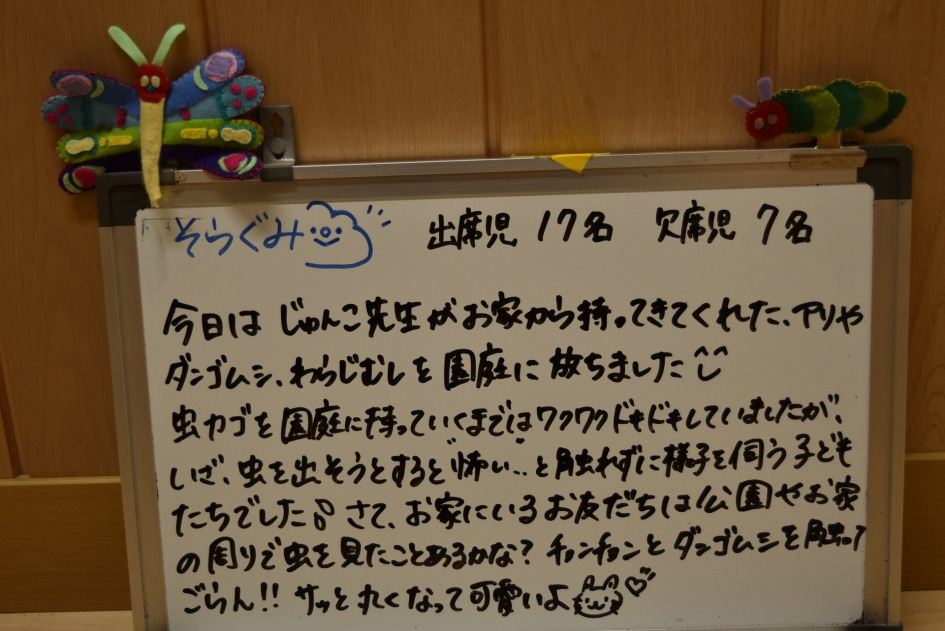 そらぐみ 出席児 17名 欠席児 7名
今日は じゅんこ先生が お家から 持ってきてくれた、アリや
ダンゴムシ、わらじむしを 園庭に 放ちました
虫カゴを 園庭に持っていくまでは ワクワクドキドキしていましたが、
いざ、虫を出そうとすると"怖い.."と 触れずに 様子を伺う 子ども
たちでした♪ さて、お家にいる お友だちは 公園やお家
の周りで虫を見たことあるかな? チョンチョンと ダンゴムシを 触って
ごらん!! サッと丸くなって可愛いよ